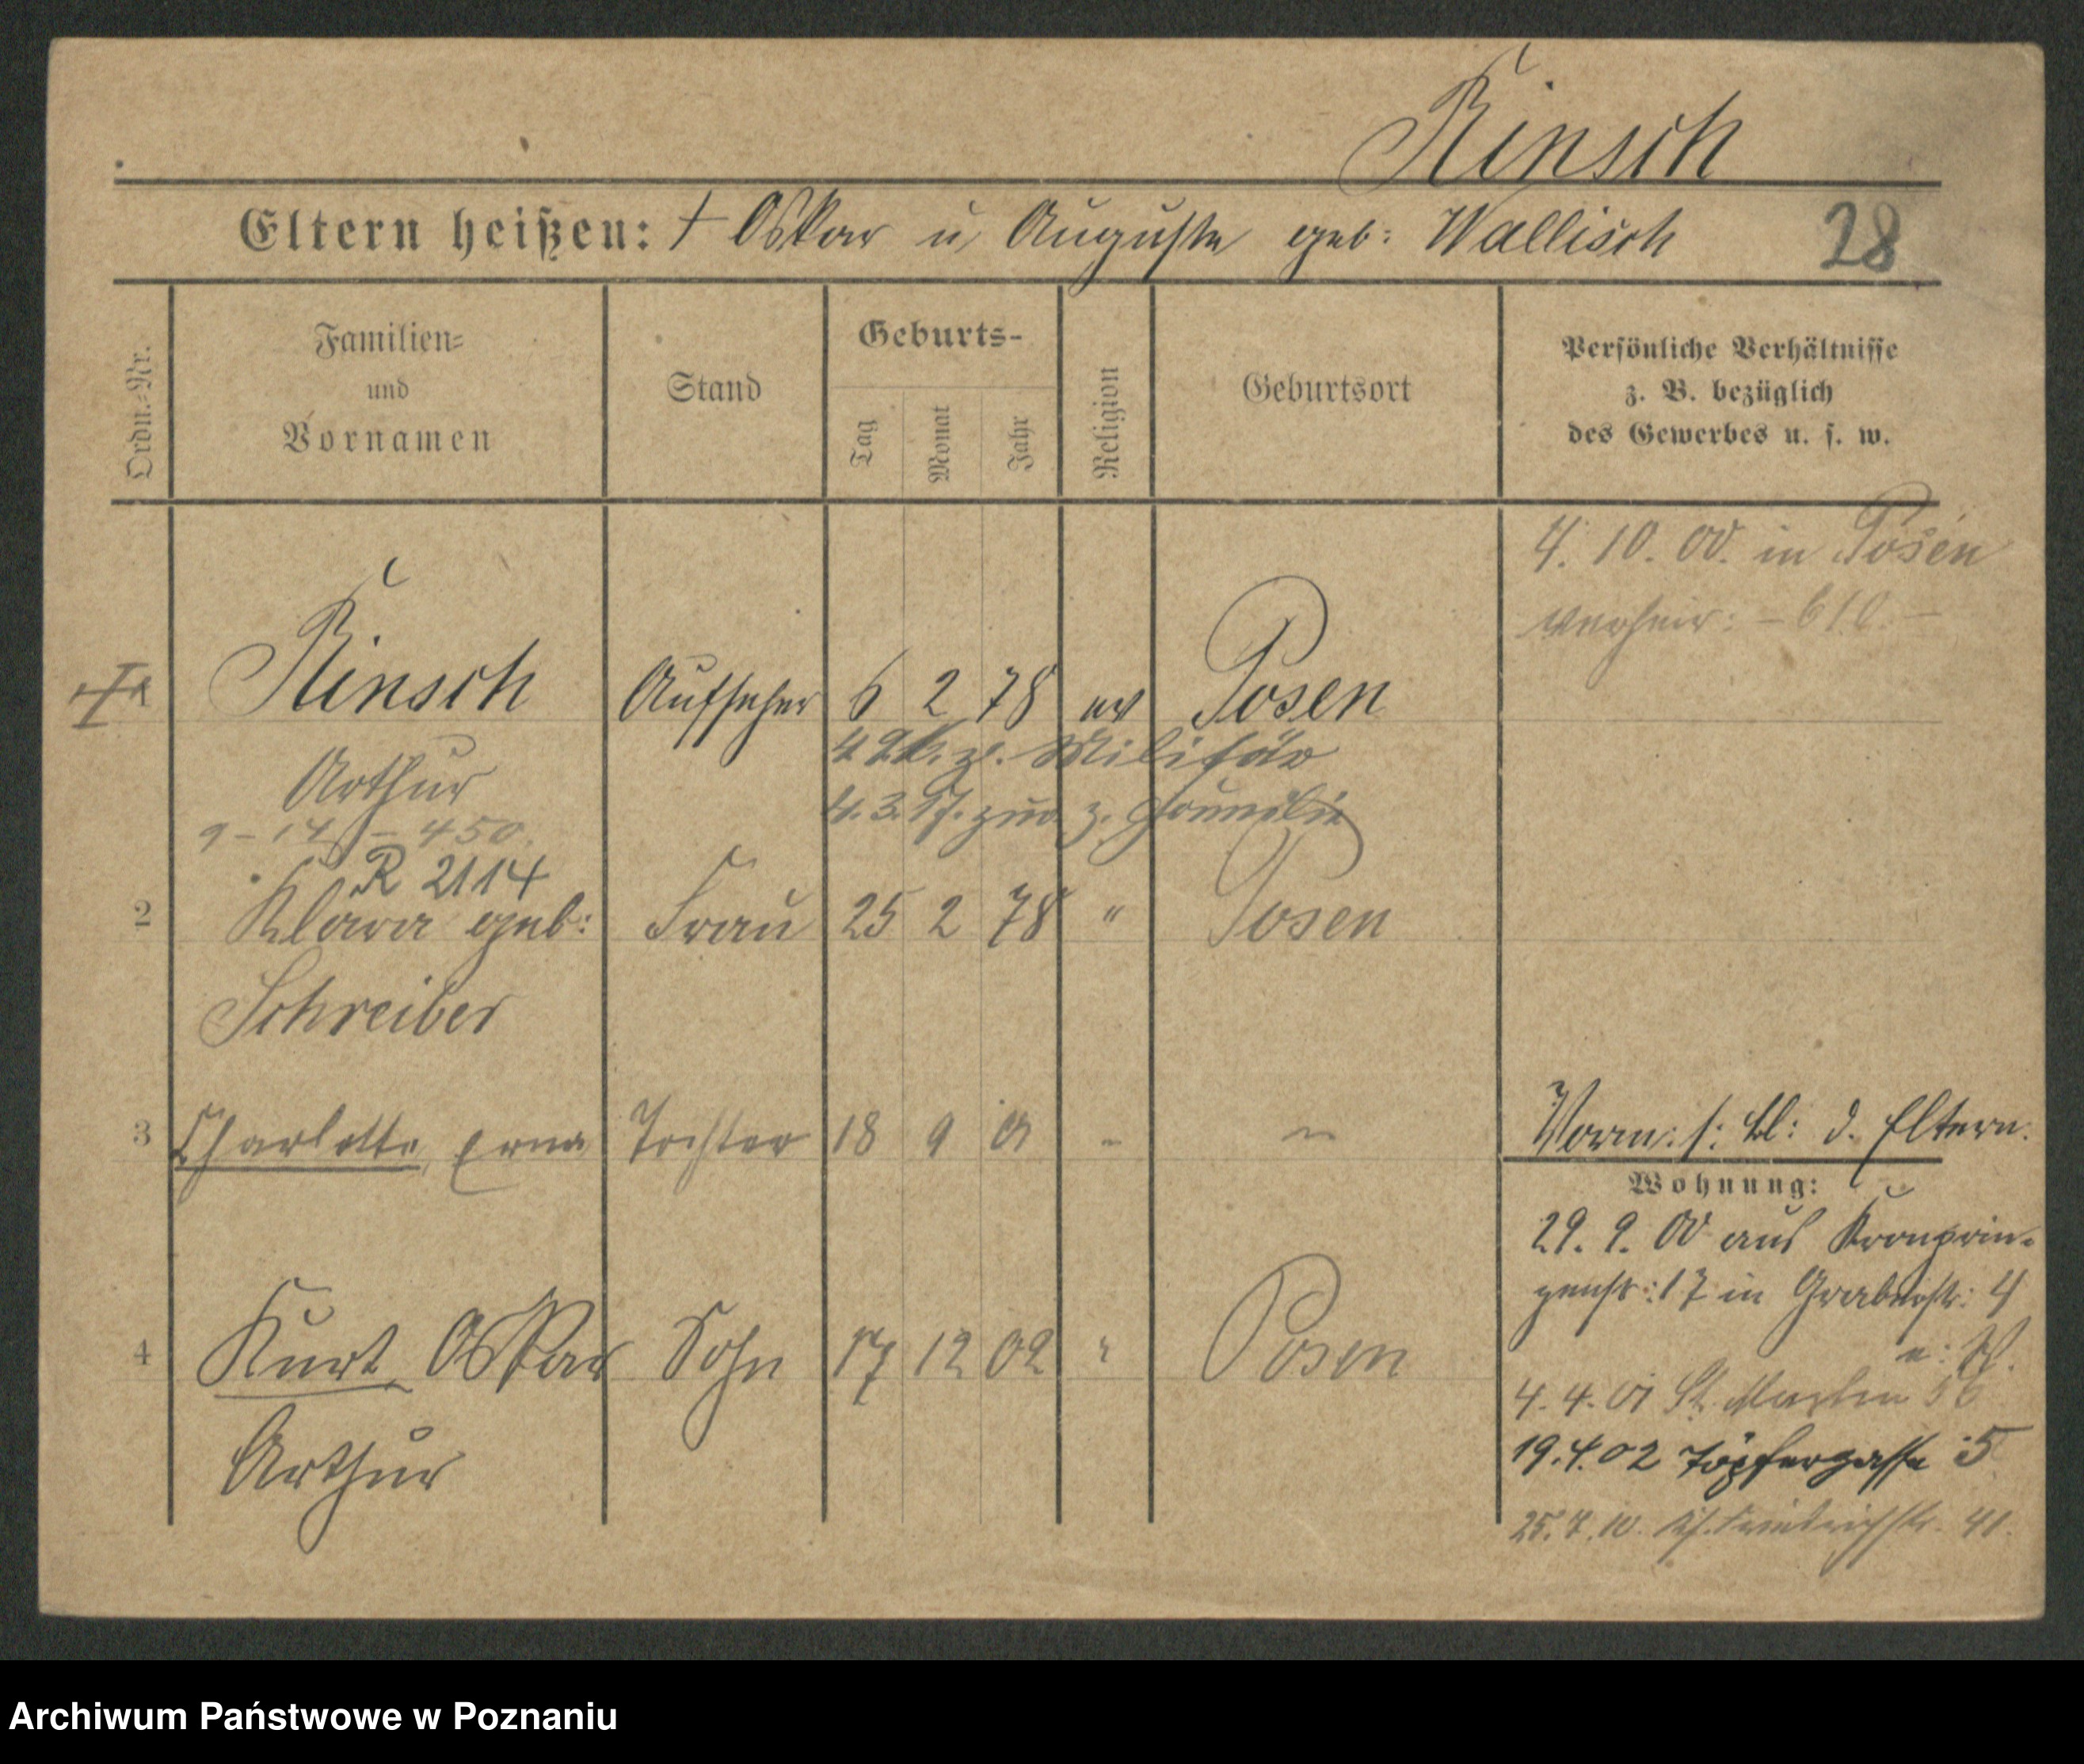 Rinsch
Eltern heißen: † Oskar u. Auguste geb: Wallisch 28
Ordn.-Nr.
Familien-
und
Vornamen
Stand
Geburts-
Tag
Monat
Jahr
Religion
Geburtsort
Persönliche Verhältnisse
z. B. bezüglich
des Gewerbes u. s. w.
4. 10. 00. in Posen
verheir: – 610. –
Rinsch Aufseher 6 2 78 ev Posen
z. Militär
Arthur
4. 3. 17. zur. z. Familie
9 – 14 – 450.
R 2114
2 Klara geb: Frau 25 2 78 " Posen
Schreiber
3 Charlotte, Erna Tochter 18 9 01 " "
Vorm: s: bl: d. Eltern.
Wohnung:
29. 9. 00 aus Kronprin-
zenstr: 17 in Grabenstr: 4
4 Kurt Oskar Sohn 17 12 02 " Posen
4. 4. 01 St. Martin 56
Arthur
19. 4. 02 Töpfergasse 5
25. 7. 10. Kf. Friedrichstr. 41.
Archiwum Państwowe w Poznaniu